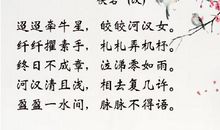 迢迢牵牛星，皎皎河汉女。
纤纤擢素手，札札弄机杼。
终日不成章，泣涕零如雨。
河汉清且浅，相去复几许。
盈盈一水间，脉脉不得语。